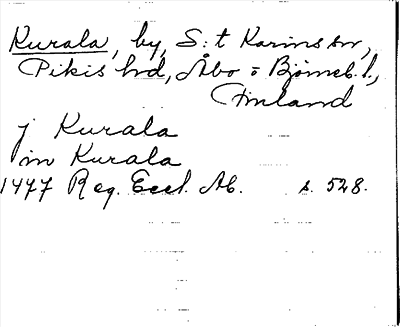 Kurala, by, S:t Karins sn,
Pikis hd, Åbo o Björneb. l.,
Finland
j Kurala
in Kurala
1477 Reg. Eccl. Ab. s. 528.